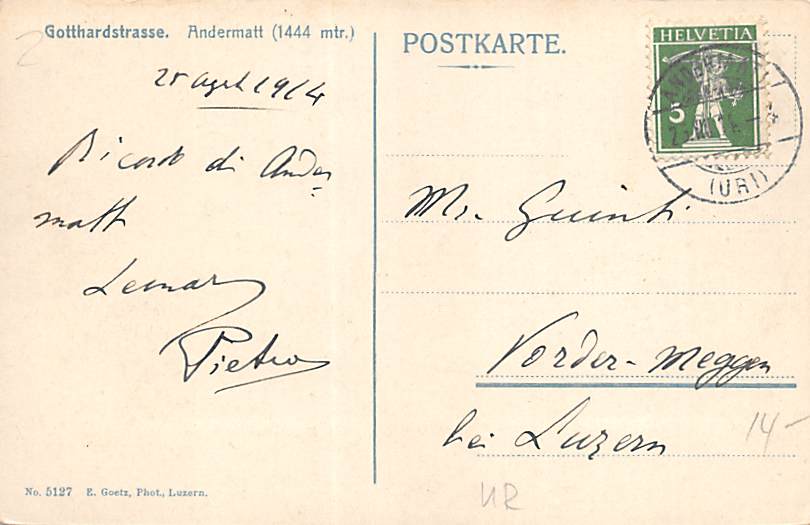 2
Gotthardstrasse. Andermatt (1444 mtr.)
25 1914
Ricordo di Ander-
matt
Pietro
No. 5127 E. Goetz, Phot., Luzern.
POSTKARTE.
HELVETIA
5
(URI)
Mr. Guinti
Vorder-Meggen
bei Luzern
14-
UR